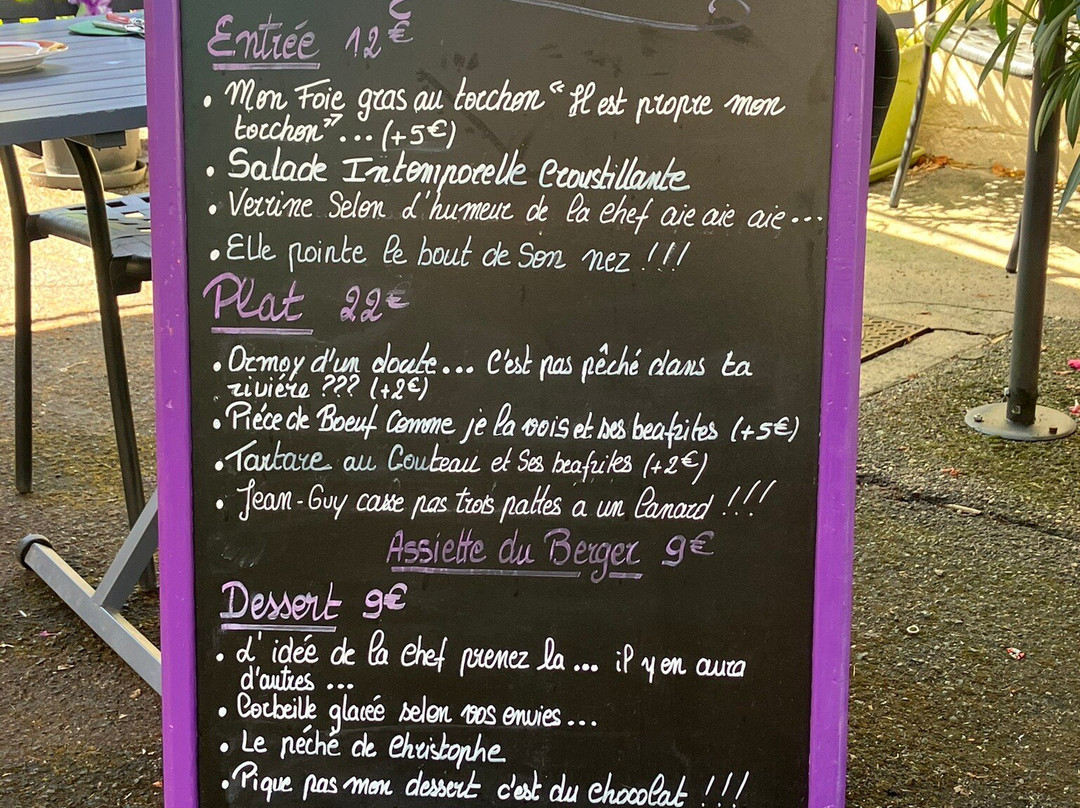 Entrée 12€
• Mon Foie gras au torchon "Il est propre mon
torchon"... (+5€)
• Salade Intemporelle Croustillante
• Verrine Selon d'humeur de la chef aie aie aie...
• Elle pointe le bout de Son nez !!!
Plat 22€
• Ormoy d'un doute... C'est pas pêché dans ta
riviére ??? (+2€)
• Piéce de Boeuf Comme je la vois et ses beafrites (+5€)
• Tartare au Couteau et Ses beafrites (+2€)
• Jean-Guy casse pas trois pattes a un Canard !!!
Assiette du Berger 9€
Dessert 9€
• L'idée de la chef prenez la... il y en aura
d'autres...
• Corbeille glacéé selon vos envies...
• Le péché de Christophe
• Pique pas mon dessert c'est du chocolat !!!